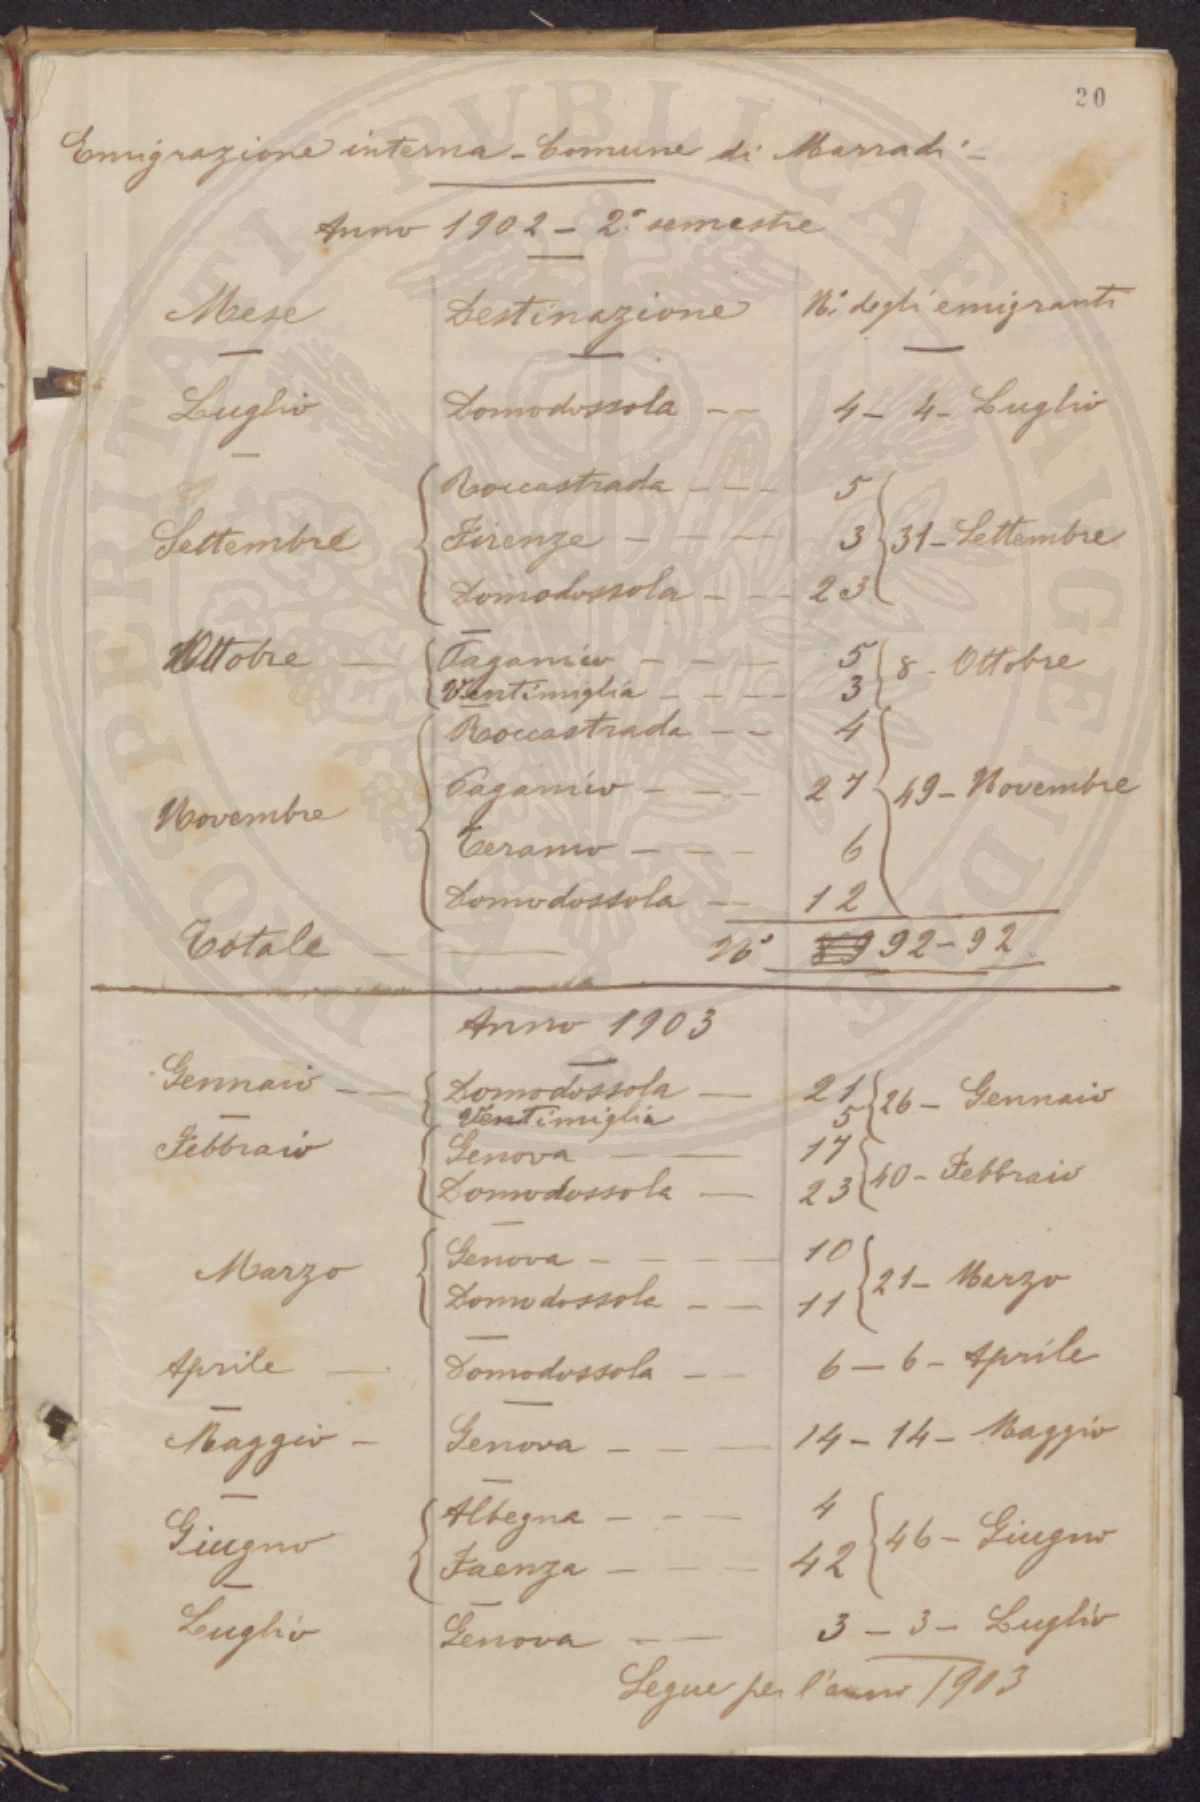 20
Emigrazione interna - Comune di Marradi -
Anno 1902 - 2° semestre
Mese Destinazione N° degli emigranti
Luglio Domodossola -- 4 - 4 - Luglio
Roccastrada --- 5
Settembre Firenze --- 3 31 - Settembre
Domodossola --- 23
Ottobre - Paganico --- 5 8 - Ottobre
Ventimiglia --- 3
Roccastrada -- 4
Paganico --- 27 49 - Novembre
Novembre
Teramo --- 6
Domodossola - 12
Totale -- N° 92 - 92
Anno 1903
Gennaio -- Domodossola - 21 26 - Gennaio
Ventimiglia 5
Febbraio Genova -- 17 40 - Febbraio
Domodossola - 23
Marzo Genova ---- 10 21 - Marzo
Domodossola -- 11
Aprile - Domodossola -- 6 - 6 - Aprile
Maggio - Genova --- 14 - 14 - Maggio
Giugno Albegna --- 4 46 - Giugno
Faenza --- 42
Luglio Genova -- 3 - 3 - Luglio
Segue per l'anno 1903
PVBLICAE VIGENDO PERITATI PROSP